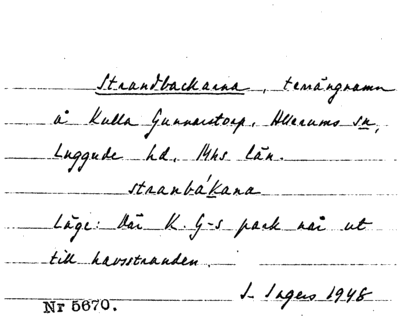 Strandbackarna, terrängnamn
å Kulla Gunnarstorp, Allerums sn,
Luggude hd, Mhs län.
stranbákana
Läge: Där K. G-s park når ut
till havsstranden.
I. Ingers 1948
Nr 5670.